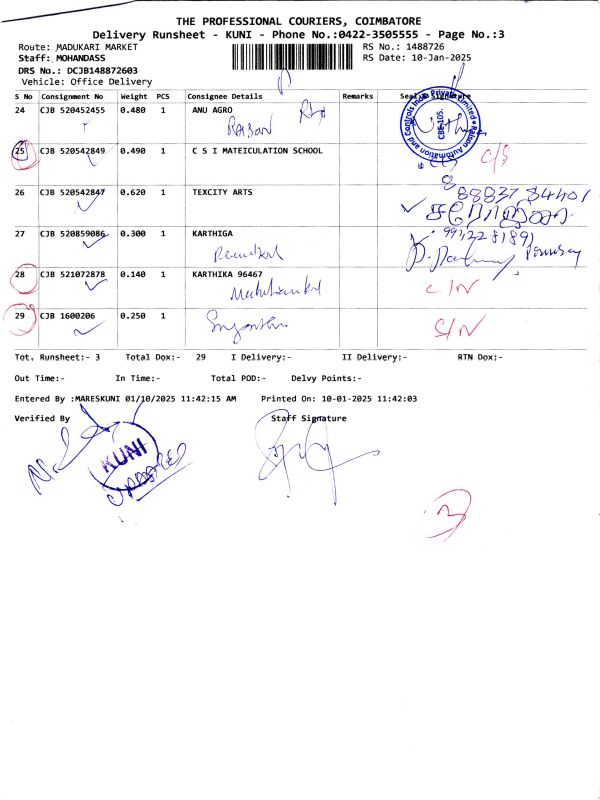 THE PROFESSIONAL COURIERS, COIMBATORE
Delivery Runsheet - KUNI - Phone No.:0422-3505555 - Page No.:3
Route: MADUKARI MARKET RS No.: 1488726
Staff: MOHANDASS RS Date: 10-Jan-2025
DRS No.: DCJB148872603
Vehicle: Office Delivery
S No Consignment No Weight PCS Consignee Details Remarks Seal & Signature
24 CJB 520452455 0.480 1 ANU AGRO
CBE-105.
25 CJB 520542849 0.490 1 C S I MATEICULATION SCHOOL
26 CJB 520542847 0.620 1 TEXCITY ARTS
88837 84401
27 CJB 520859086 0.300 1 KARTHIGA
28 CJB 521072878 0.140 1 KARTHIKA 96467
29 CJB 1600206 0.250 1
Tot. Runsheet:- 3 Total Dox:- 29 I Delivery:- II Delivery:- RTN Dox:-
Out Time:- In Time:- Total POD:- Delvy Points:-
Entered By :MARESKUNI 01/10/2025 11:42:15 AM Printed On: 10-01-2025 11:42:03
Verified By Staff Signature
KUNI
3